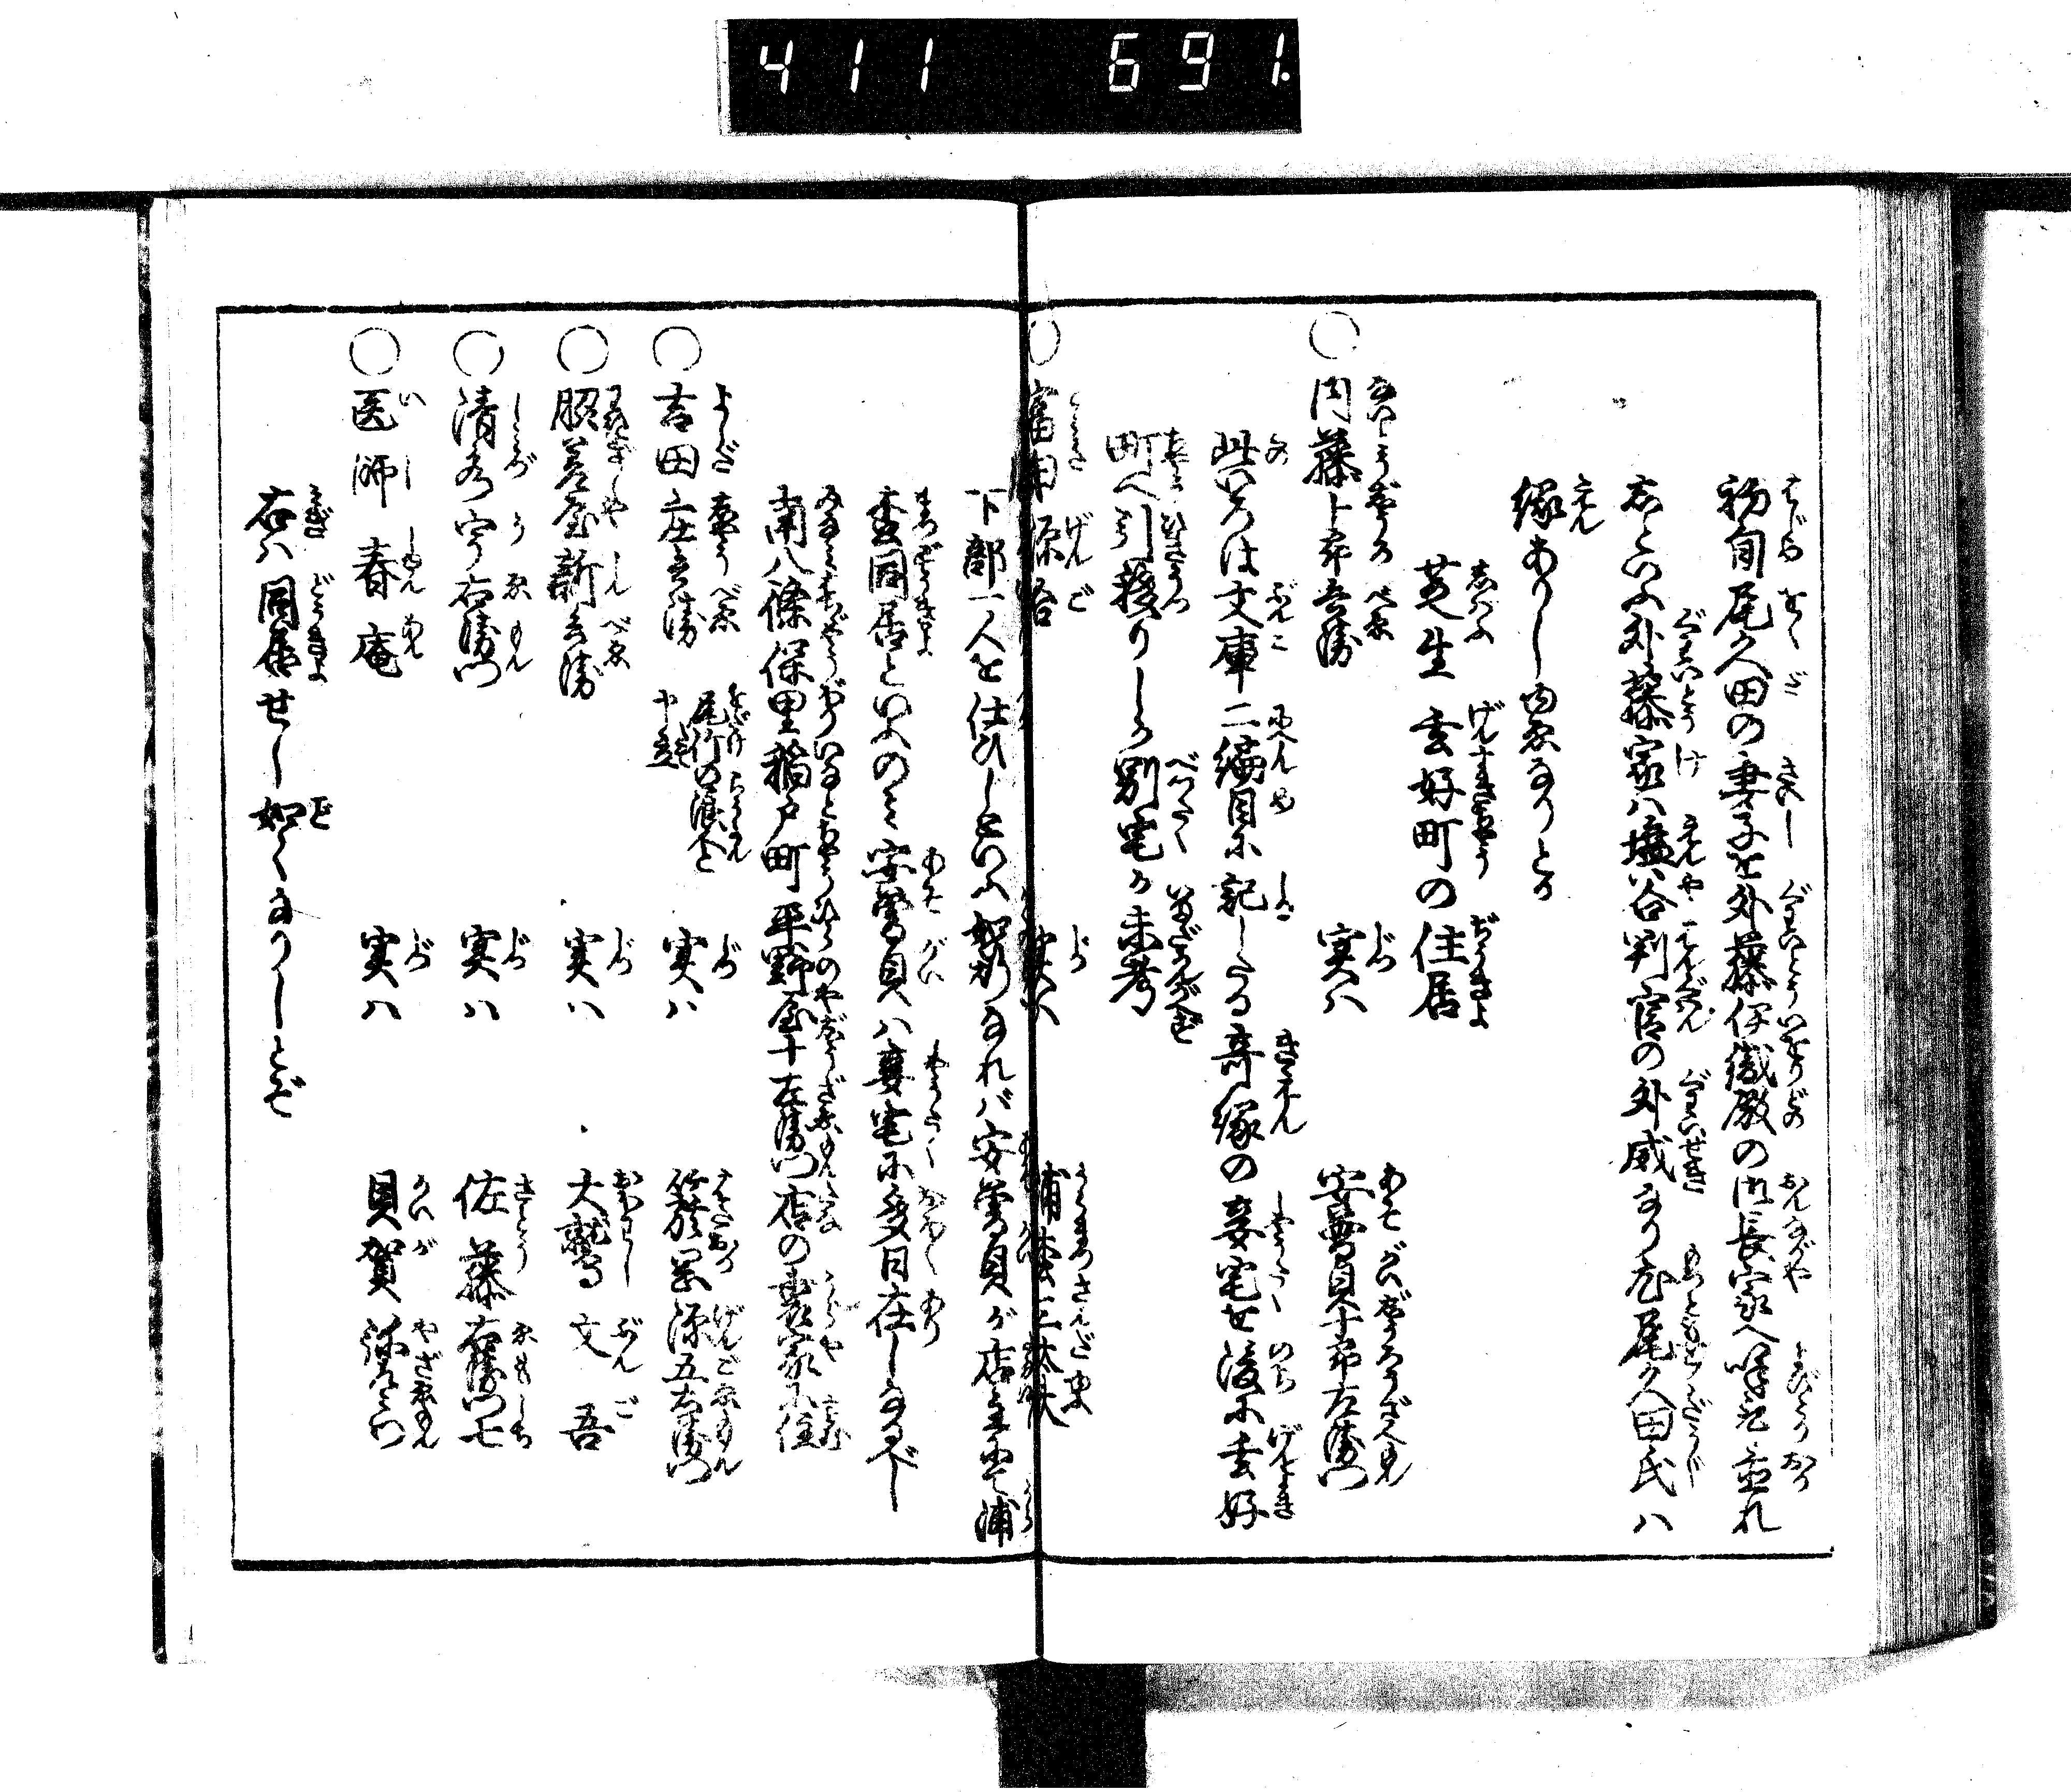 411 691.
初旬尾久田の妻子を外藤伊織殿の御長家へ
右といふ外藤家ハ塩谷判官の外戚なり尾久田氏ハ
縁ありし由なりとか
芝生玄好町の住居
○内藤十郎兵衛 実ハ 安曽貝十郎左衛門
此ころは文庫二編目に記したる奇縁の妾宅せ後に玄好
町へ引移りしか別宅か未考
○富田源吾 実ハ 浦松三太夫
下部一人を仕ひしといふ如斯なれバ安曽貝が店主にて浦
松同居といふのミ安曽貝ハ妾宅に多日在しなるべし
南八條保里稲戸町平野屋十左衛門店の裏家に住
○吉田庄兵衛 尾竹の浪人と 実ハ 籏岡源五右衛門
○脇差屋新兵衛 実ハ 大鷲文吾
○清水宇右衛門 実ハ 佐藤右衛門七
○医師春庵 実ハ 貝賀弥左衛門
右ハ同居せし如くなりしとぞ